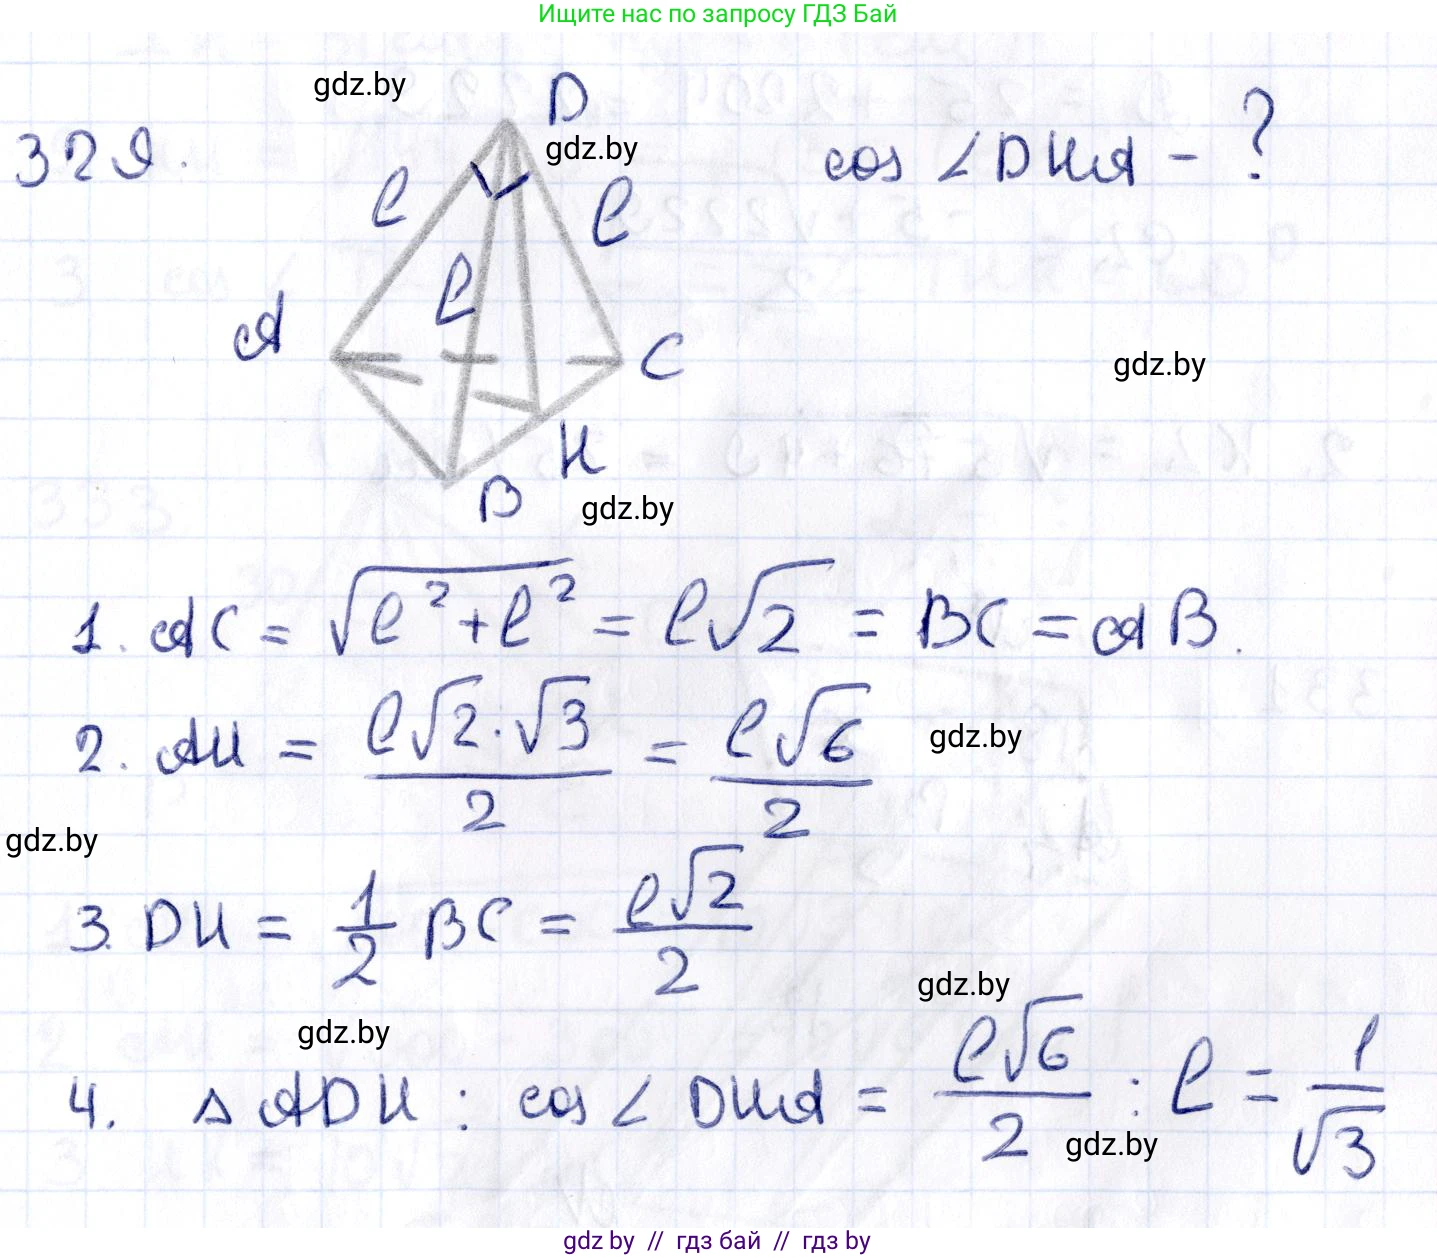 Ищите нас по запросу ГДЗ Бай
gdz.by
D
329.
gdz.by
cos ∠DHA - ?
l
l
l
A
C
gdz.by
H
B
gdz.by
1. AC = √(l² + l²) = l√2 = BC = AB.
2. AH = l√2·√3/2 = l√6/2
gdz.by
gdz.by
3. DH = 1/2 BC = l√2/2
gdz.by
gdz.by
4. △ADH : cos∠DHA = l√6/2 : l = 1/√3
gdz.by
gdz by // гдз бай // гдз by